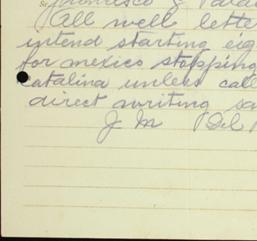 Francisco
All well lette
intend starting eig
for mexico stopping
catalina unless call
direct writing
J M Del